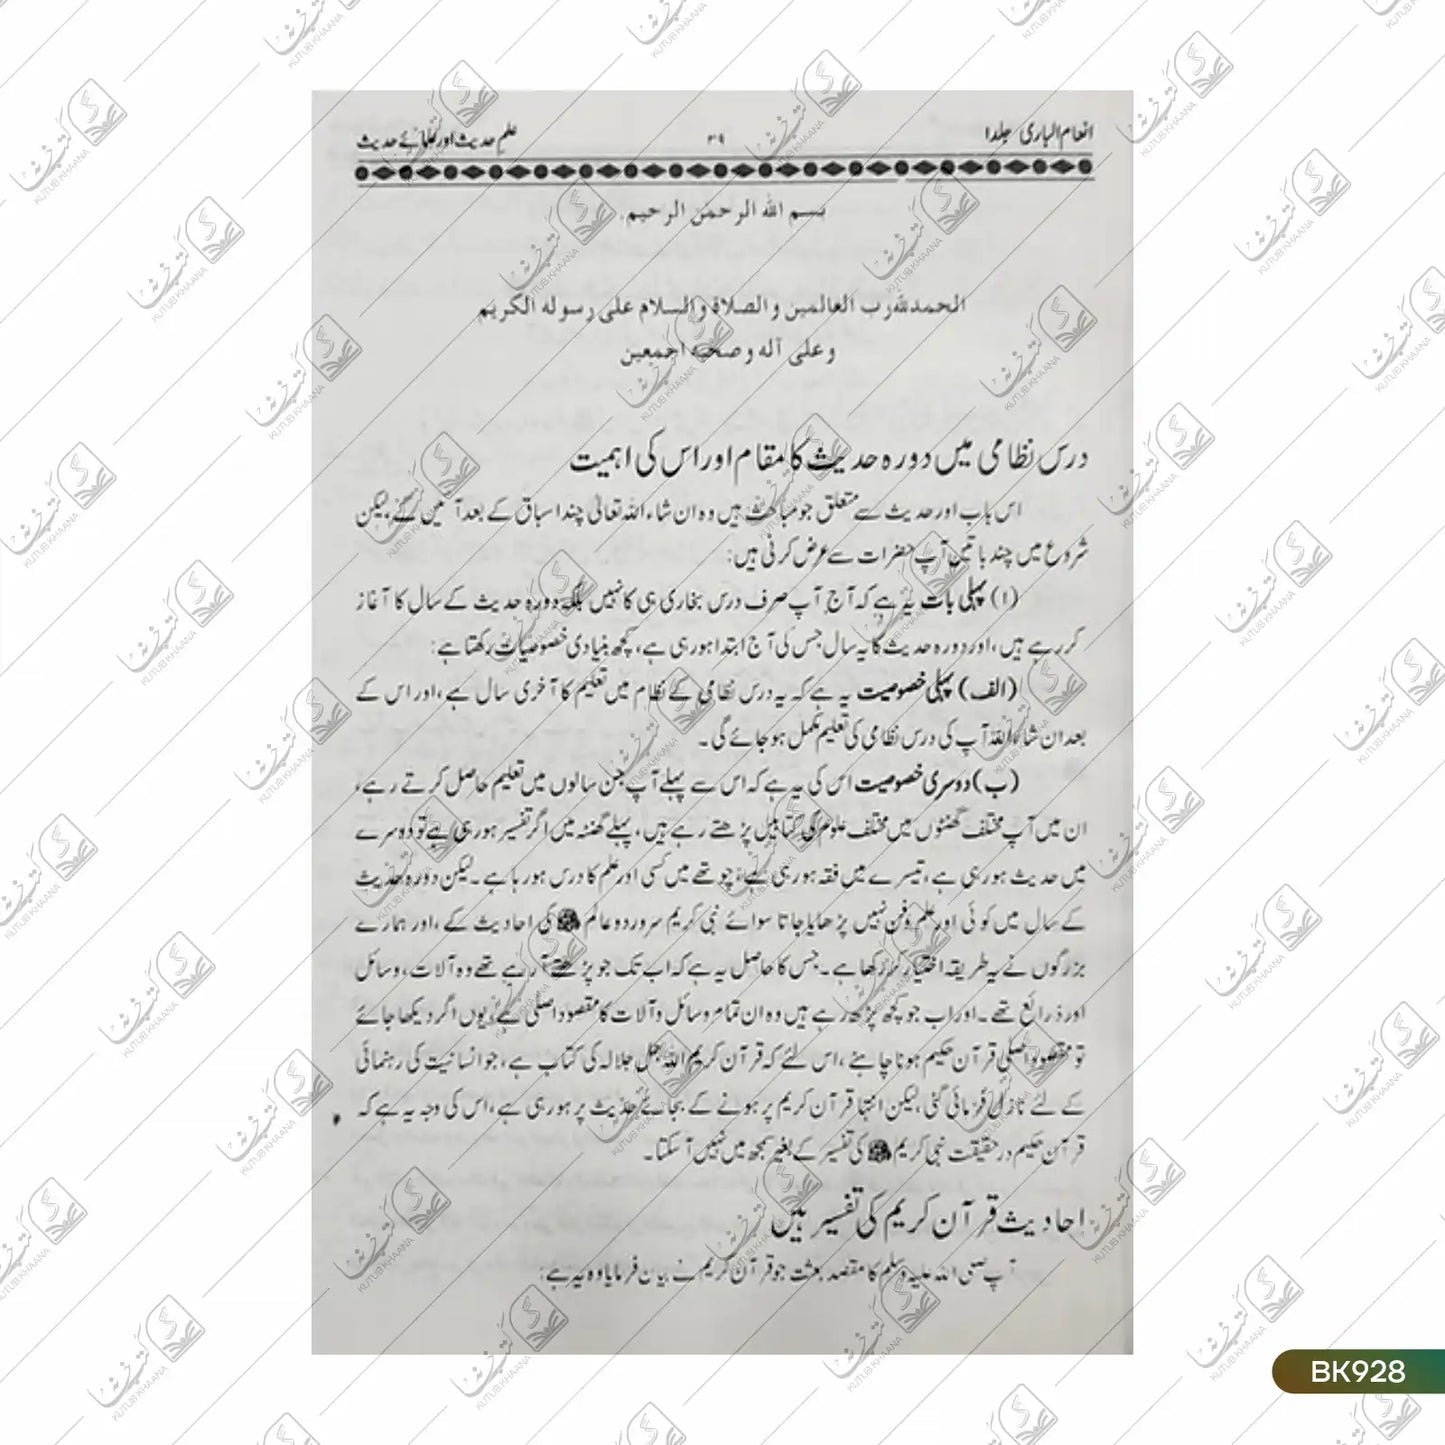 انعام الباری جلد ۱
۳۹
علمِ حدیث اور علمائے حدیث
بسم اللہ الرحمن الرحیم.
الحمدللہ رب العالمین والصلاۃ والسلام علی رسولہ الکریم
وعلی آلہ وصحبہ اجمعین
درس نظامی میں دورہ حدیث کا مقام اور اس کی اہمیت
اس باب اور حدیث سے متعلق جو مباحث ہیں وہ ان شاء اللہ تعالیٰ چند اسباق کے بعد آئیں گے، لیکن
شروع میں چند باتیں آپ حضرات سے عرض کرنی ہیں:
(۱) پہلی بات یہ ہے کہ آج آپ صرف درس بخاری ہی کا نہیں بلکہ دورہ حدیث کے سال کا آغاز
کررہے ہیں، اور دورہ حدیث کا یہ سال جس کی آج ابتدا ہورہی ہے، کچھ بنیادی خصوصیات رکھتا ہے:
(الف) پہلی خصوصیت یہ ہے کہ یہ درس نظامی کے نظام میں تعلیم کا آخری سال ہے، اور اس کے
بعد ان شاء اللہ آپ کی درس نظامی کی تعلیم مکمل ہوجائے گی۔
(ب) دوسری خصوصیت اس کی یہ ہے کہ اس سے پہلے آپ جن سالوں میں تعلیم حاصل کرتے رہے،
ان میں آپ مختلف گھنٹوں میں مختلف علوم کی کتابیں پڑھتے رہے ہیں، پہلے گھنٹہ میں اگر تفسیر ہورہی ہے تو دوسرے
میں حدیث ہورہی ہے، تیسرے میں فقہ ہورہی ہے، چوتھے میں کسی اور علم کا درس ہورہا ہے۔ لیکن دورہ حدیث
کے سال میں کوئی اور علم وفن نہیں پڑھایا جاتا سوائے نبی کریم سرور دو عالم ﷺ کی احادیث کے، اور ہمارے
بزرگوں نے یہ طریقہ اختیار کر رکھا ہے۔ جس کا حاصل یہ ہے کہ اب تک جو پڑھتے آرہے تھے وہ آلات، وسائل
اور ذرائع تھے۔ اور اب جو کچھ پڑھ رہے ہیں وہ ان تمام وسائل وآلات کا مقصود اصلی ہے، یوں اگر دیکھا جائے
تو مقصود اصلی قرآن حکیم ہونا چاہئے، اس لئے کہ قرآن کریم اللہ جل جلالہ کی کتاب ہے، جو انسانیت کی رہنمائی
کے لئے نازل فرمائی گئی، لیکن انتہا قرآن کریم پر ہونے کے بجائے حدیث پر ہورہی ہے، اس کی وجہ یہ ہے کہ
قرآن حکیم درحقیقت نبی کریم ﷺ کی تفسیر کے بغیر سمجھ میں نہیں آسکتا۔
احادیث قرآن کریم کی تفسیر ہیں
آپ صلی اللہ علیہ وسلم کا مقصد بعثت جو قرآن کریم نے بیان فرمایا وہ یہ ہے:
کتب خانہ
KUTUB KHAANA
BK928